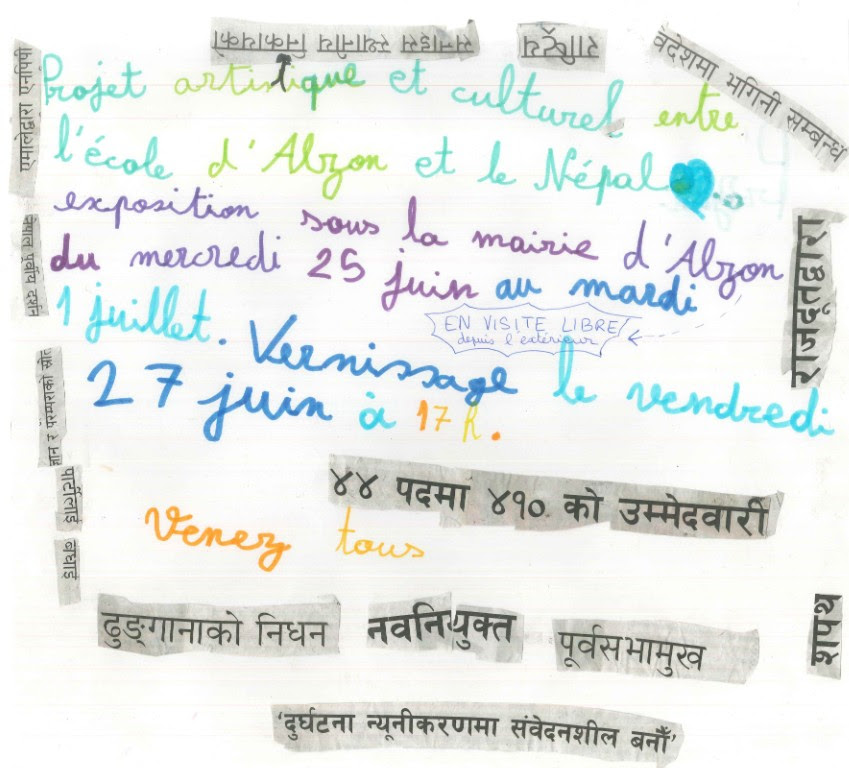 सनाइस स्थानीय निकायको
राष्ट्रिय
वदेशमा भगिनी सम्बन्ध
एमालेद्वारा एनपिपी
Projet artistique et culturel entre
l'école d'Alzon et le Népal
exposition sous la mairie d'Alzon
du mercredi 25 juin au mardi
1 juillet. Vernissage le vendredi
27 juin à 17h.
EN VISITE LIBRE
depuis l'extérieur
राजदूतद्वारा
ज्ञान र परम्पराको स्रोत
पार्टीलाई
४४ पदमा ४१० को उम्मेदवारी
Venez tous
ढुङ्गानाको निधन
नवनियुक्त
पूर्वसभामुख
शपथ
'दुर्घटना न्यूनीकरणमा संवेदनशील बनौँ'